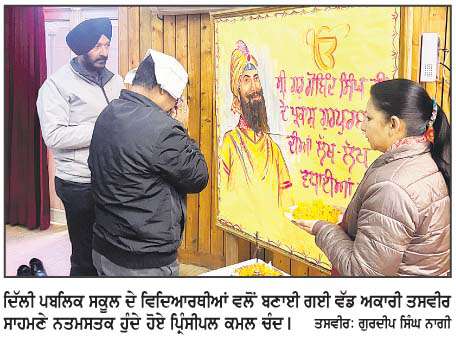 ੴ
ਸ੍ਰੀ ਗੁਰੂ ਗੋਬਿੰਦ ਸਿੰਘ ਜੀ
ਦੇ ਪ੍ਰਕਾਸ਼ ਗੁਰਪੁਰਬ
ਦੀਆਂ ਲੱਖ ਲੱਖ
ਵਧਾਈਆਂ
ਦਿੱਲੀ ਪਬਲਿਕ ਸਕੂਲ ਦੇ ਵਿਦਿਆਰਥੀਆਂ ਵਲੋਂ ਬਣਾਈ ਗਈ ਵੱਡ ਅਕਾਰੀ ਤਸਵੀਰ
ਸਾਹਮਣੇ ਨਤਮਸਤਕ ਹੁੰਦੇ ਹੋਏ ਪ੍ਰਿੰਸੀਪਲ ਕਮਲ ਚੰਦ। ਤਸਵੀਰ: ਗੁਰਦੀਪ ਸਿੰਘ ਨਾਗੀ